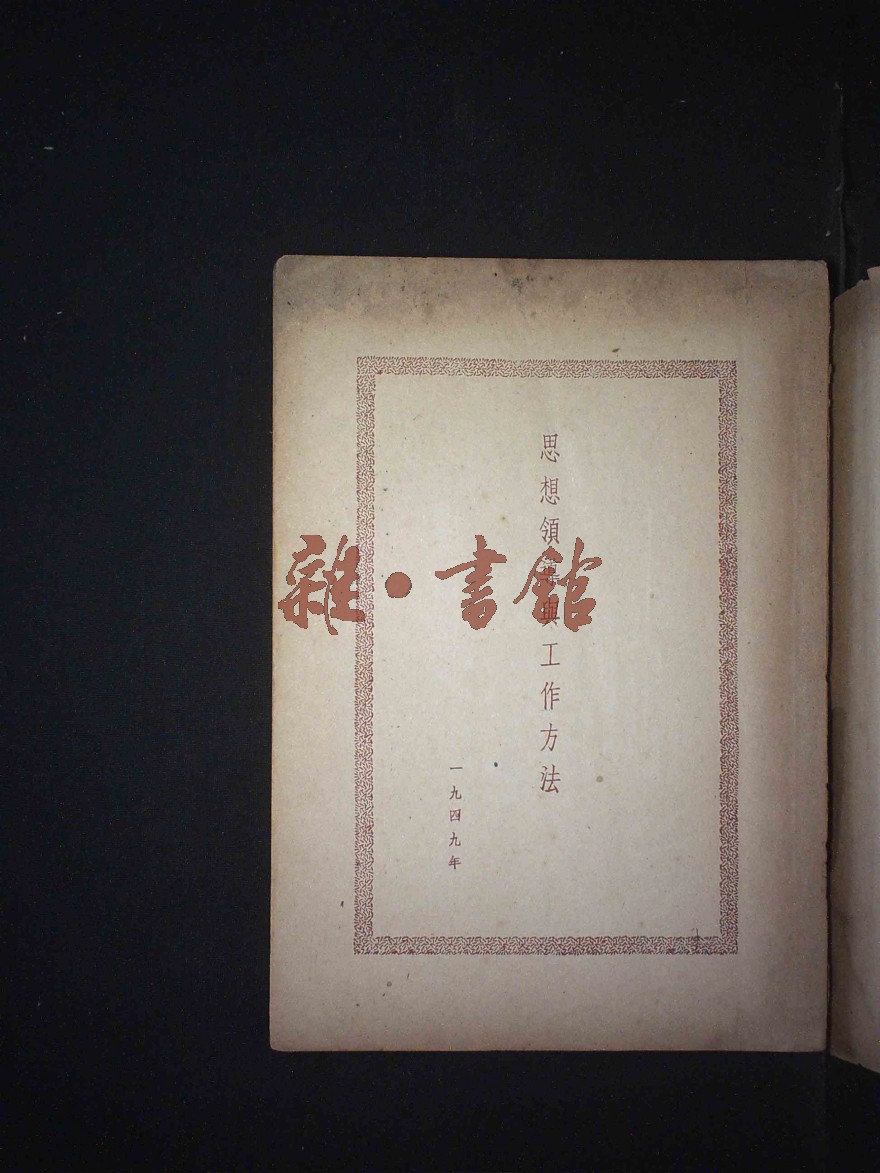 思想領導與工作方法
一九四九年
雜·書館